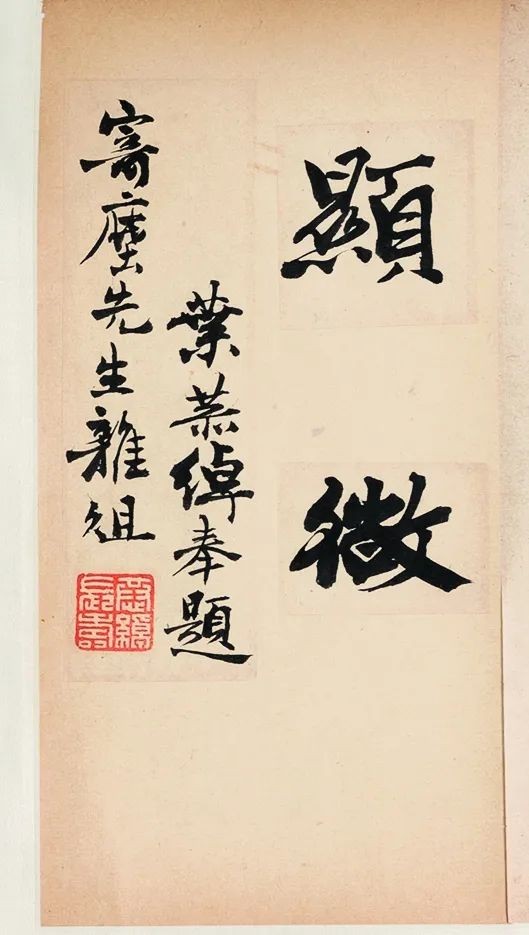 顯微
葉恭綽奉題
寄先生雜俎